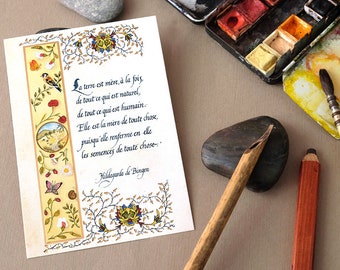 La terre est mère, à la fois,
de tout ce qui est naturel,
de tout ce qui est humain.
Elle est la mère de toute chose,
puisqu'elle renferme en elle
les semences de toute chose.
Hildegarde de Bingen